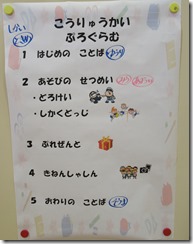 しかい
こうりゅうかい
ぷろぐらむ
1 はじめの ことば
2 あそびの せつめい
・どろけい
・しかくどっじ
3 ぷれぜんと
4 きねんしゃしん
5 おわりの ことば